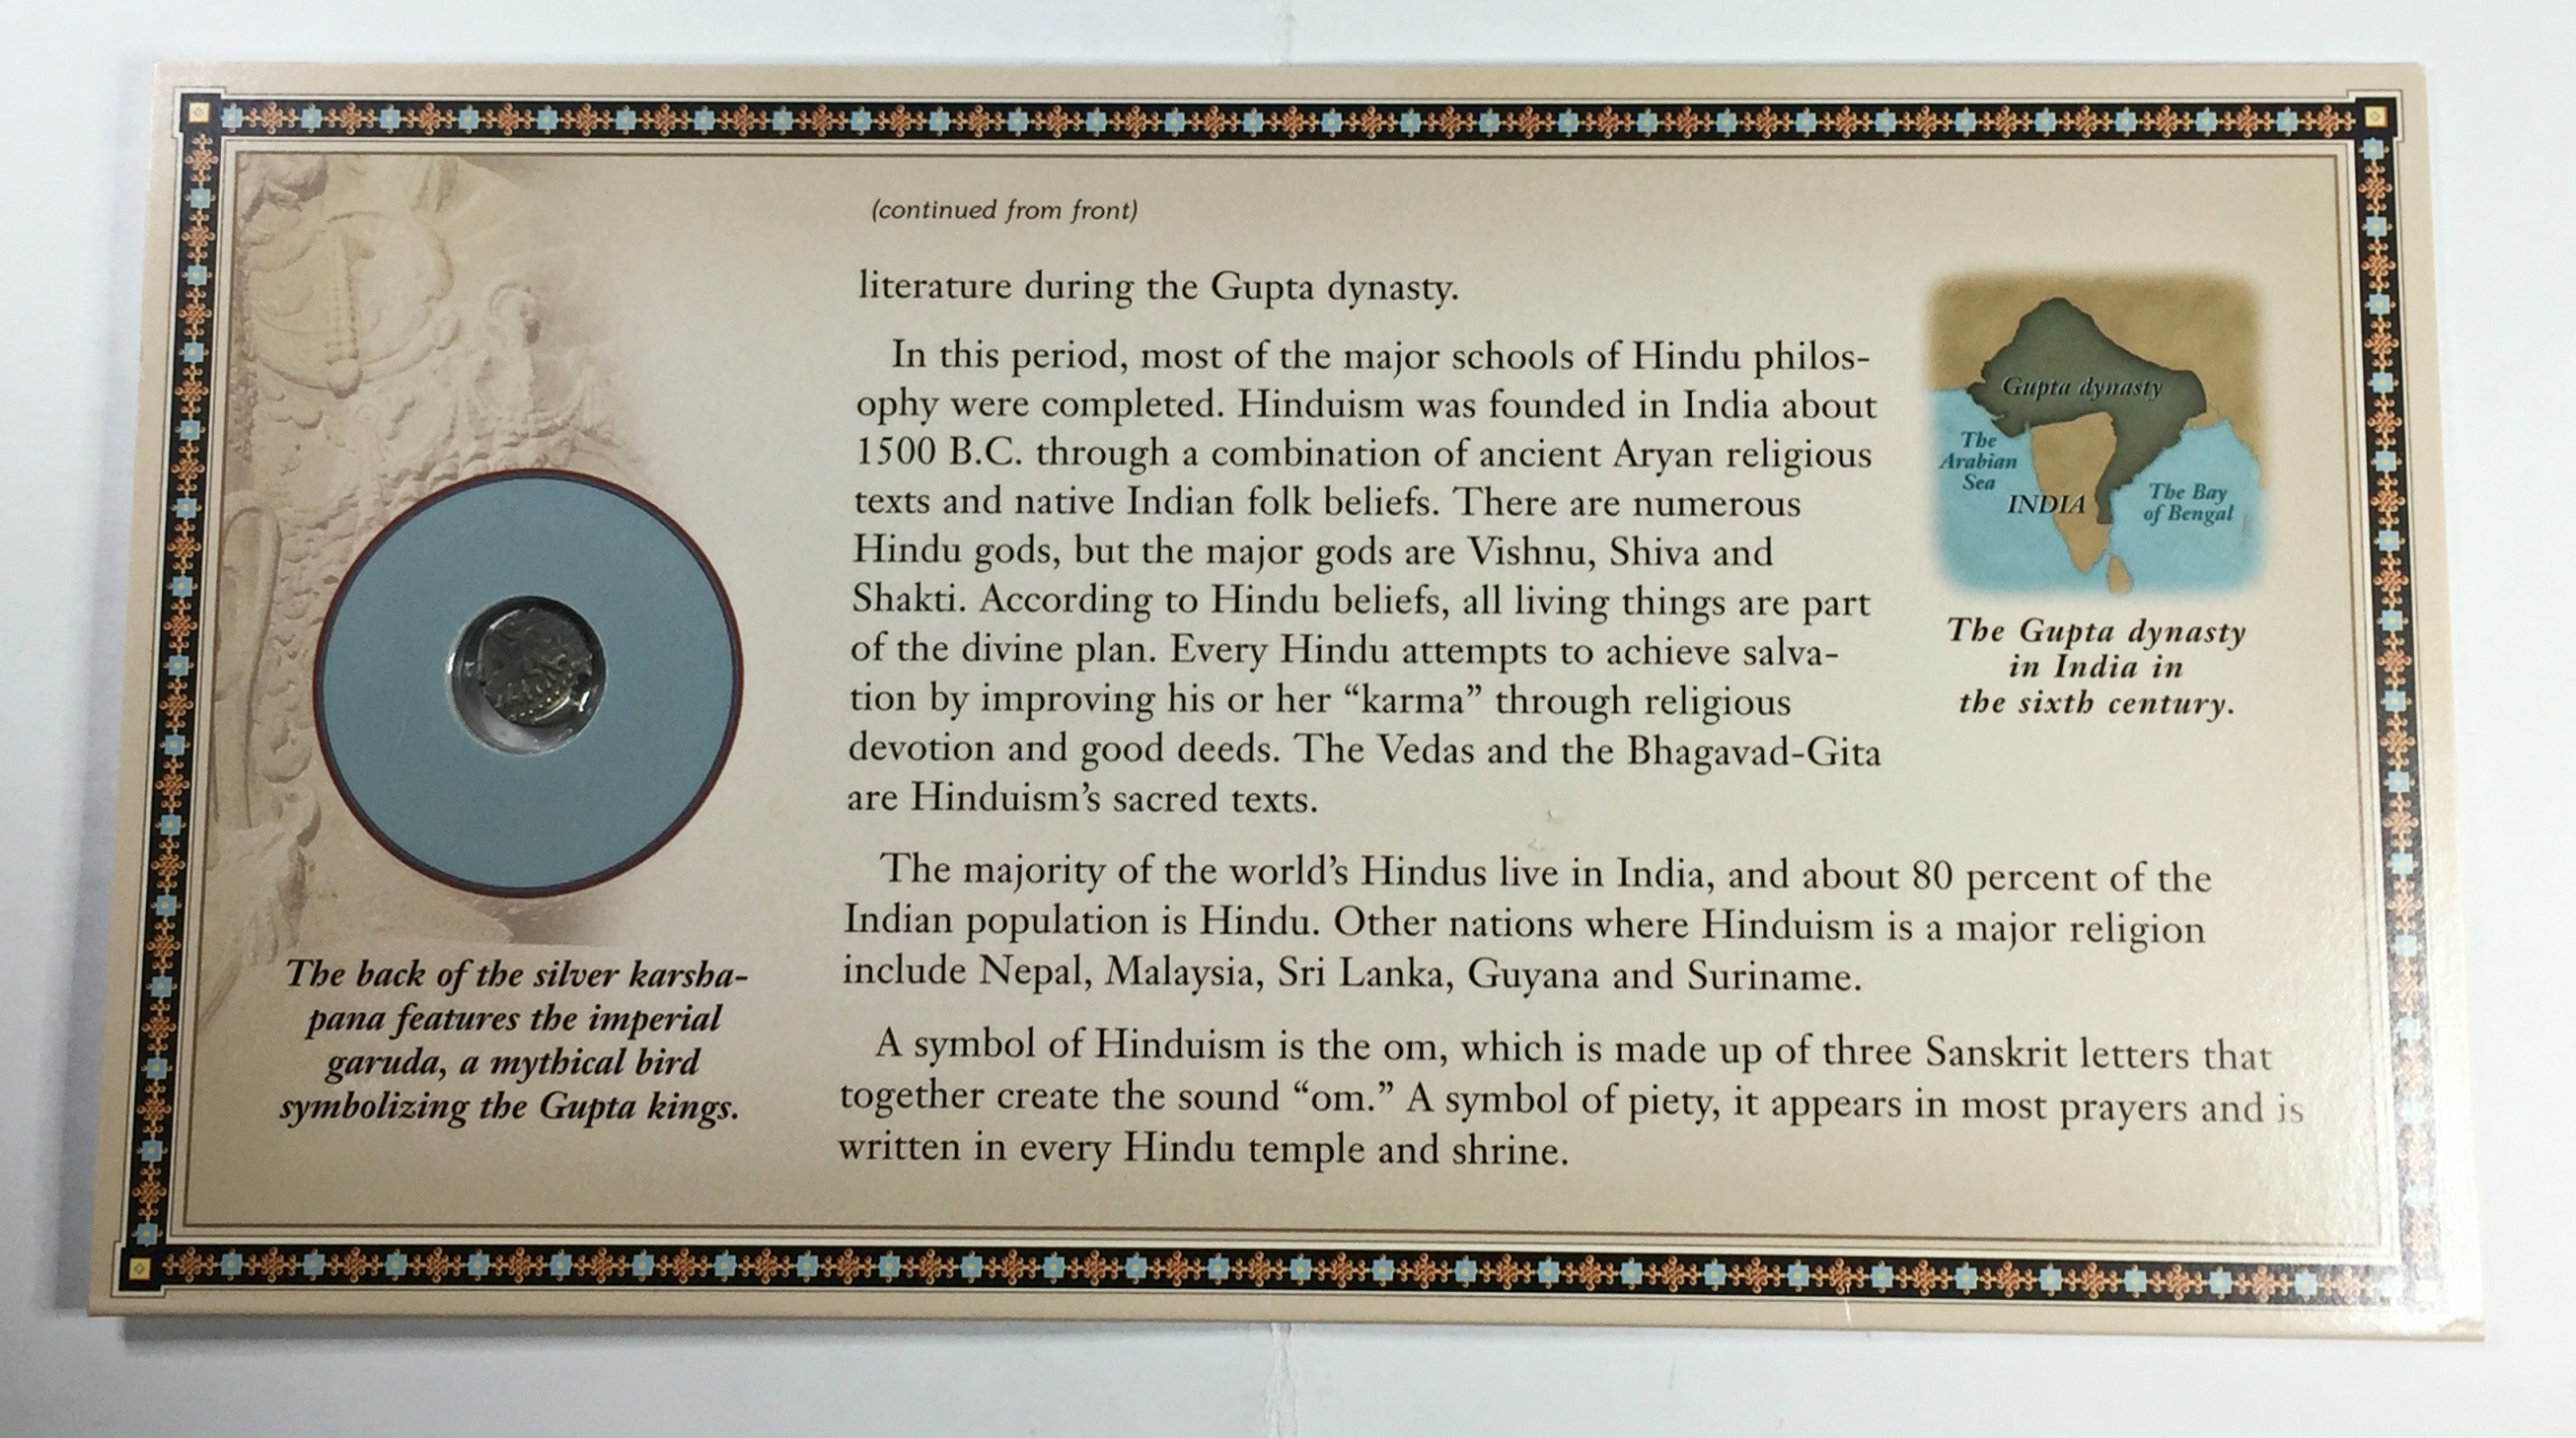 (continued from front)
literature during the Gupta dynasty.
In this period, most of the major schools of Hindu philos-
ophy were completed. Hinduism was founded in India about
1500 B.C. through a combination of ancient Aryan religious
texts and native Indian folk beliefs. There are numerous
Hindu gods, but the major gods are Vishnu, Shiva and
Shakti. According to Hindu beliefs, all living things are part
of the divine plan. Every Hindu attempts to achieve salva-
tion by improving his or her “karma” through religious
devotion and good deeds. The Vedas and the Bhagavad-Gita
are Hinduism’s sacred texts.
The majority of the world’s Hindus live in India, and about 80 percent of the
Indian population is Hindu. Other nations where Hinduism is a major religion
include Nepal, Malaysia, Sri Lanka, Guyana and Suriname.
A symbol of Hinduism is the om, which is made up of three Sanskrit letters that
together create the sound “om.” A symbol of piety, it appears in most prayers and is
written in every Hindu temple and shrine.
Gupta dynasty
The
Arabian
Sea
INDIA
The Bay
of Bengal
The Gupta dynasty
in India in
the sixth century.
The back of the silver karsha-
pana features the imperial
garuda, a mythical bird
symbolizing the Gupta kings.